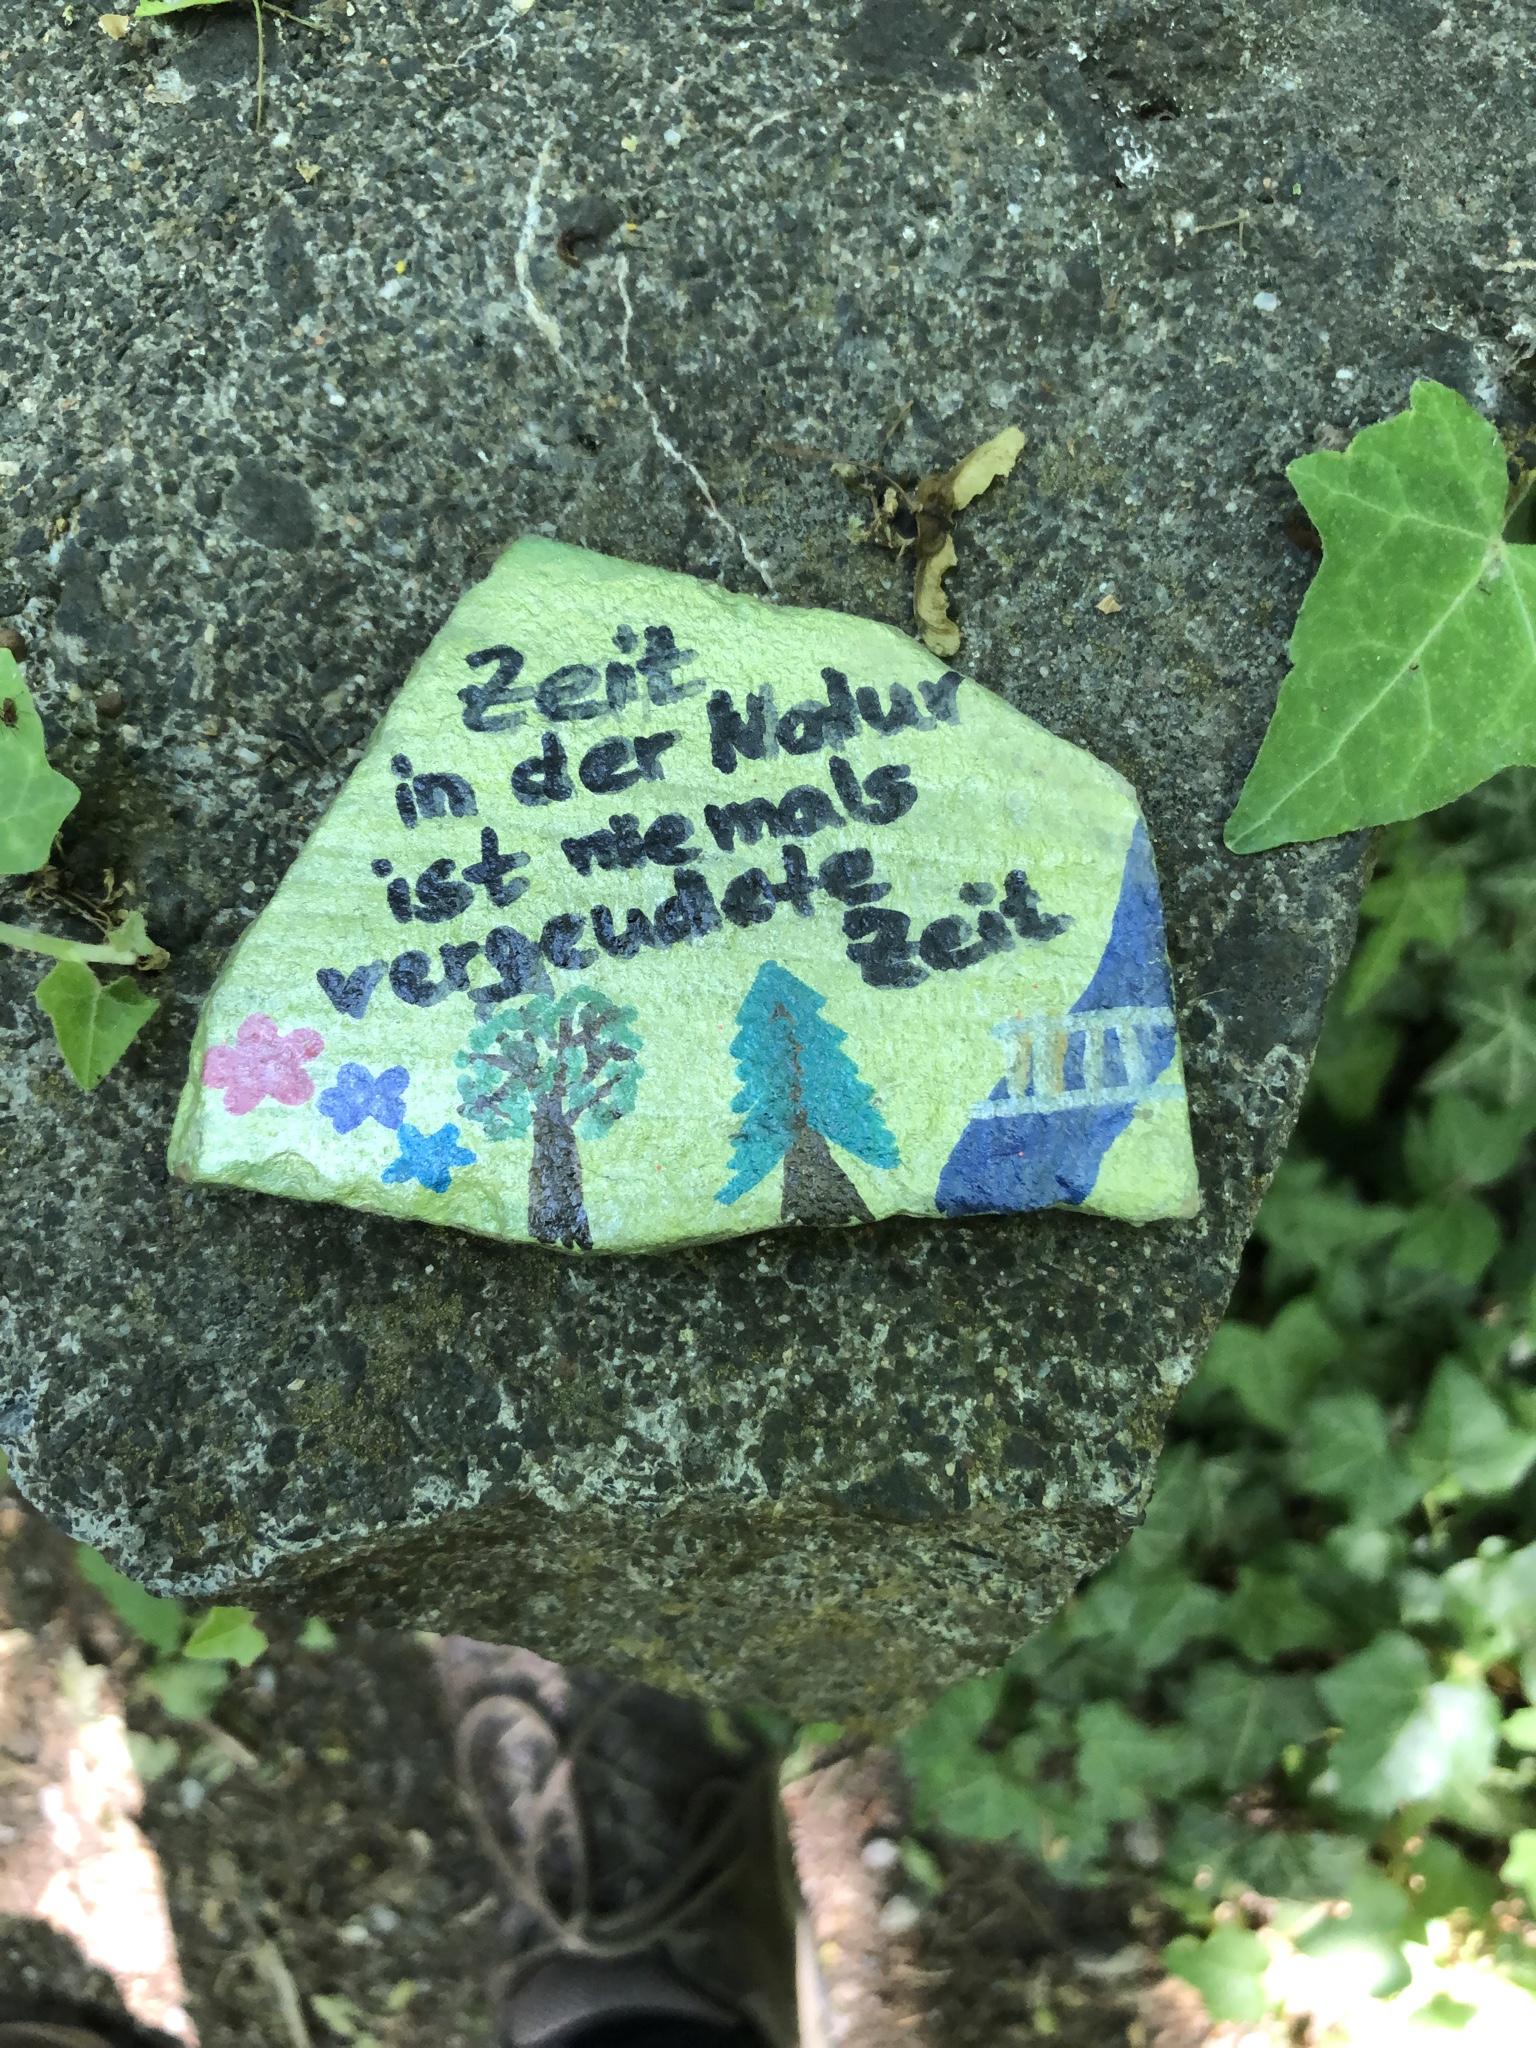 Zeit
in der Natur
ist niemals
vergeudete
Zeit